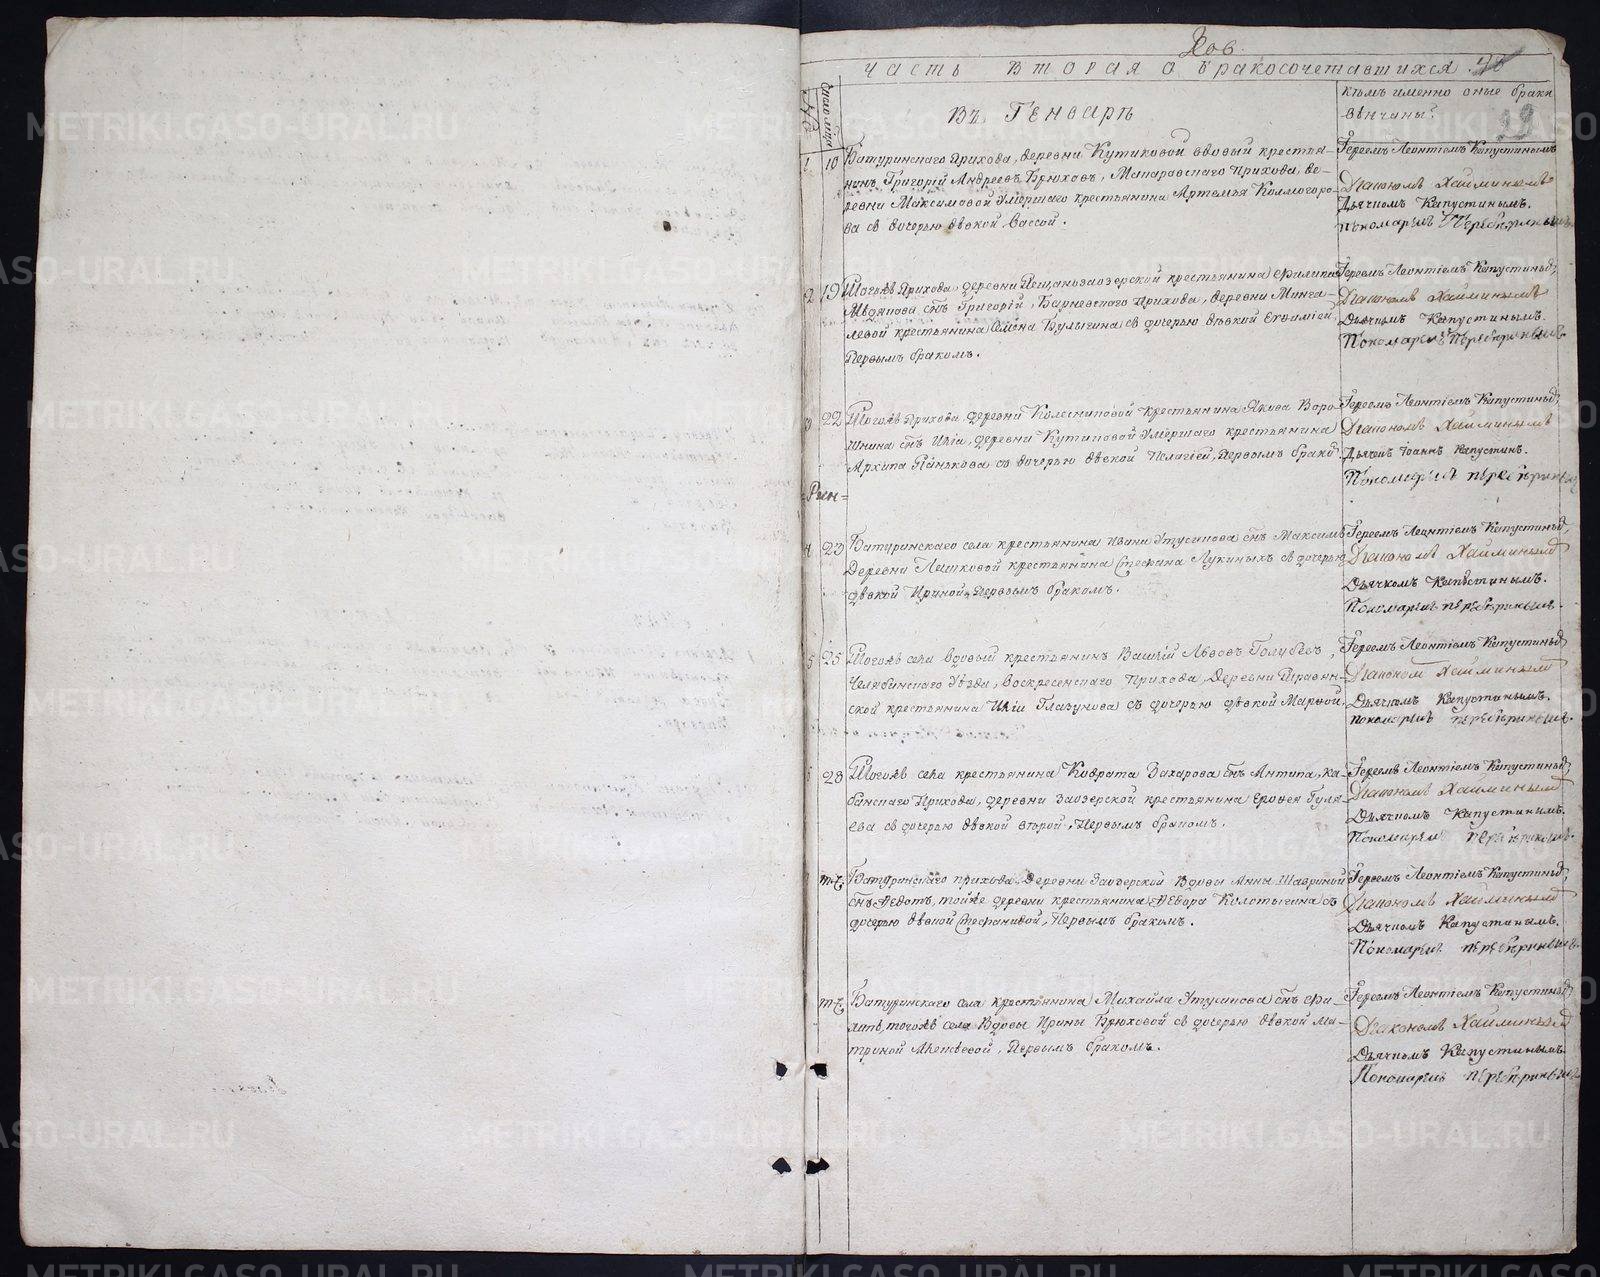 часть вторая о бракосочетавшихся.
39
Число мѣсяца
Въ Генварѣ
кѣмъ именно оные браки
вѣнчаны?
1 10 Батуринскаго Прихода, деревни Кутиковой вдовый крестья-
нинъ Григорій Андреевъ Брюховъ, Макаровскаго прихода, де-
ревни Максимовой умершаго крестьянина Артемья Колмогоро-
ва съ дочерью дѣвкой Вассой.
Іереемъ Леонтіемъ Капустинымъ
Діакономъ Хайминымъ
Дьячкомъ Капустинымъ.
пономаремъ
2 19 Тогожъ Прихода, деревни крестьянина Филипа
Авдякова снъ Григорій, Барневскаго Прихода, деревни Минга-
левой крестьянина Семена Булыгина съ дочерью дѣвкой Евфиміей,
Первымъ бракомъ.
Іереемъ Леонтіемъ Капустинымъ
Діакономъ Хайминымъ
Дьячкомъ Капустинымъ.
Пономаремъ
3 22 Тогожъ Прихода, деревни Колесниковой крестьянина Якова Воро-
шнина снъ Илія, деревни Кутиковой умершаго крестьянина
Архипа Панькова съ дочерью дѣвкой Пелагіей, Первымъ брако
Іереемъ Леонтіемъ Капустинымъ
Діакономъ Хайминымъ
Дьячекъ Іоаннъ Капустинъ.
Пономаремъ
4 23 Батуринскаго села крестьянина Ивана Утусикова снъ Максимъ
Деревни Пашковой крестьянина Стефана Лукиныхъ съ дочерью
дѣвкой Ириной, Первымъ бракомъ.
Іереемъ Леонтіемъ Капустинымъ
Діакономъ Хайминымъ
Дьячкомъ Капустинымъ.
Пономаремъ
5 25 Тогожъ села вдовый крестьянинъ Василій Львовъ Голубевъ,
Челябинскаго уѣзда, Воскресенскаго Прихода, Деревни
ской крестьянина Иліи Глазунова съ дочерью дѣвкой Марфой,
Іереемъ Леонтіемъ Капустинымъ
Діакономъ Хайминымъ
Дьячкомъ Капустинымъ.
пономаремъ
28 Тогожъ села крестьянина Кодрата Захарова снъ Антипа, ка-
банскаго Прихода, деревни Заозерской крестьянина Ерофея Гуля-
ева съ дочерью дѣвкой второй, Первымъ бракомъ.
Іереемъ Леонтіемъ Капустинымъ
Діакономъ Хайминымъ
Дьячкомъ Капустинымъ.
Пономаремъ
Батуринскаго прихода, Деревни Заозерской Вдовы Анны Шавриной
снъ Ѳедотъ, тойже деревни крестьянина Ѳедора Колотыгина съ
дочерью дѣвкой Стефанидой, Первымъ бракомъ.
Іереемъ Леонтіемъ Капустинымъ
Діакономъ Хайминымъ
Дьячкомъ Капустинымъ.
Пономаремъ
Батуринскаго села крестьянина Михайла Утусикова снъ Фи-
липъ, тогожъ села Вдовы Ирины Брюховой съ дочерью дѣвкой Ма-
триной Алексѣевой, Первымъ бракомъ.
Іереемъ Леонтіемъ Капустинымъ
Діакономъ Хайминымъ
Дьячкомъ Капустинымъ.
Пономаремъ
METRIKI.GASO-URAL.RU